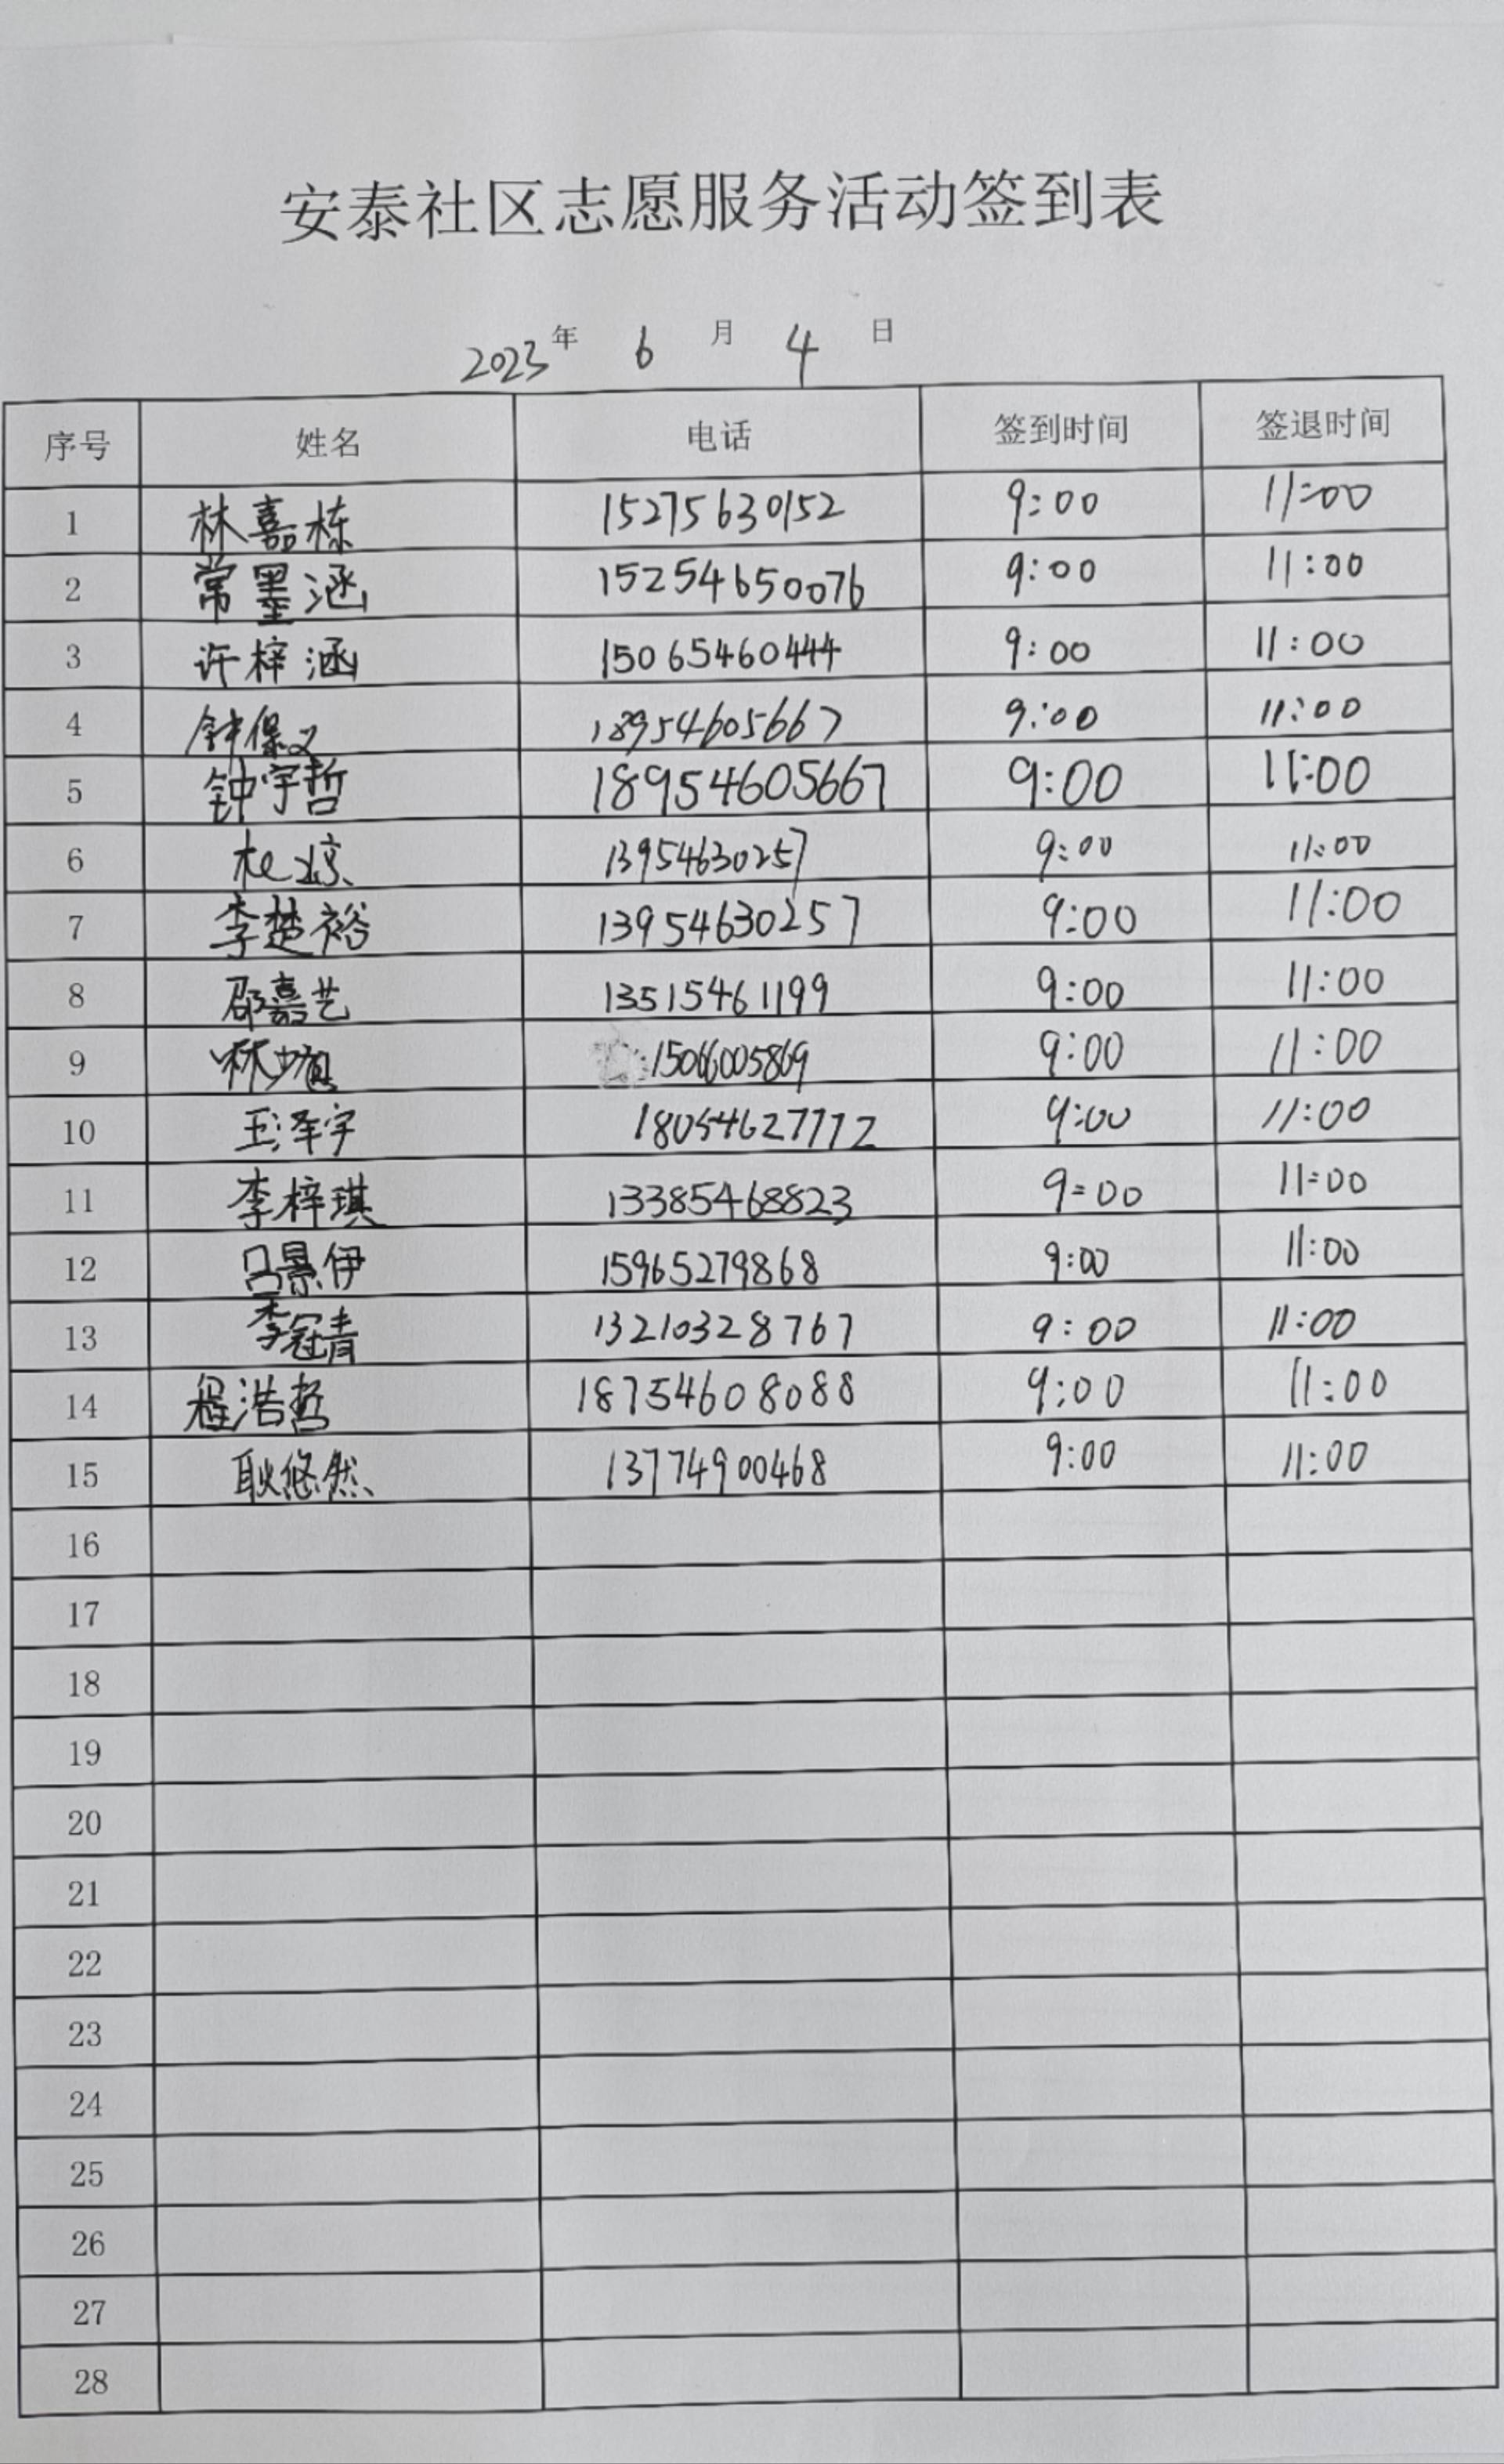 安泰社区志愿服务活动签到表
2023年 6 月 4 日
序号 姓名 电话 签到时间 签退时间
1 林嘉栋 15275630152 9:00 11:00
2 常墨涵 15254650076 9:00 11:00
3 许梓涵 15065460444 9:00 11:00
4 钟保义 18954605667 9:00 11:00
5 钟宇哲 18954605667 9:00 11:00
6 13954630257 9:00 11:00
7 李楚裕 13954630257 9:00 11:00
8 邵嘉艺 13515461199 9:00 11:00
9 15066005869 9:00 11:00
10 王泽宇 18054627772 9:00 11:00
11 李梓琪 13385468823 9:00 11:00
12 吕景伊 15965279868 9:00 11:00
13 李冠青 13210328767 9:00 11:00
14 程浩哲 18754608088 9:00 11:00
15 耿悠然 13774900468 9:00 11:00
16
17
18
19
20
21
22
23
24
25
26
27
28